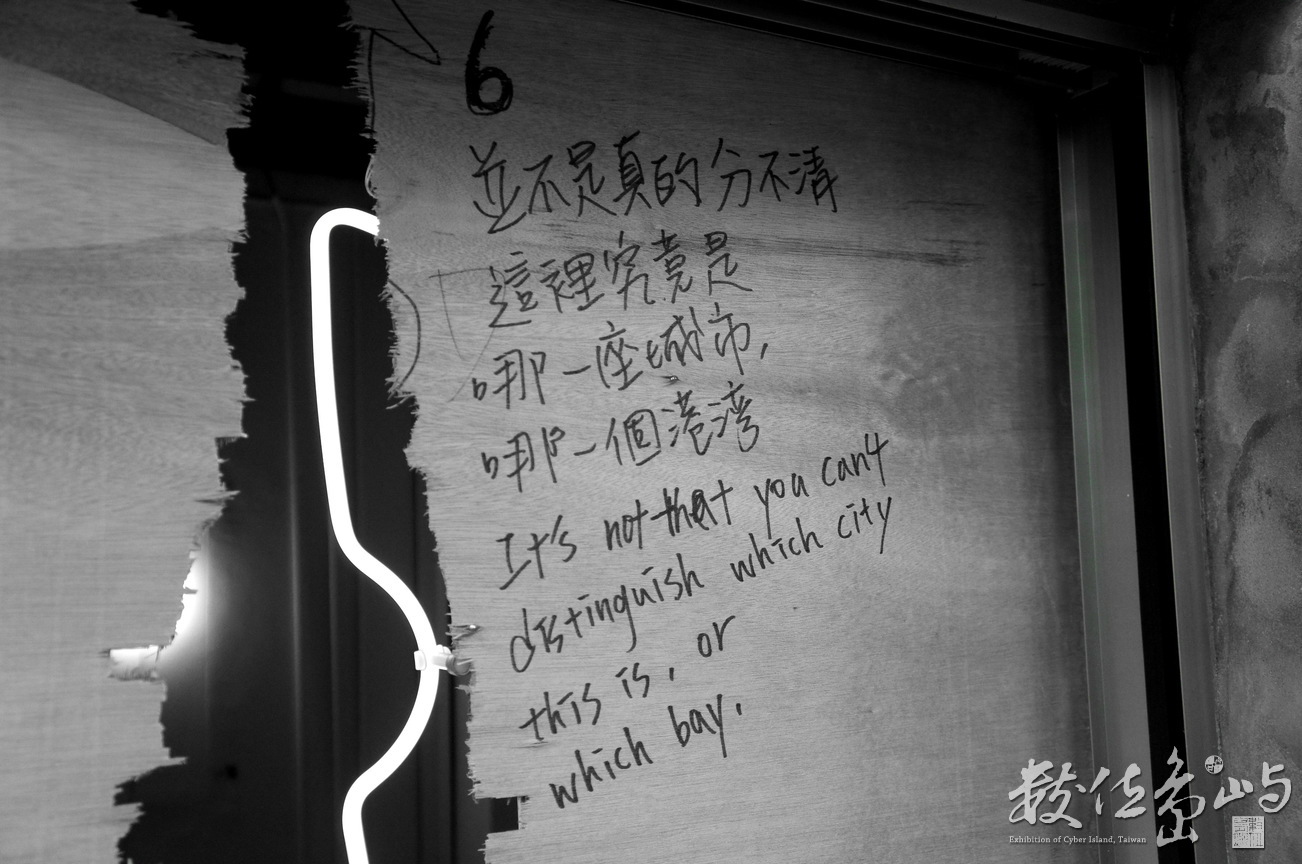 6
並不是真的分不清
這裡究竟是
哪一座城市,
哪一個港灣
It's not that you can't
distinguish which city
this is, or
which bay.
數位島嶼
Exhibition of Cyber Island, Taiwan